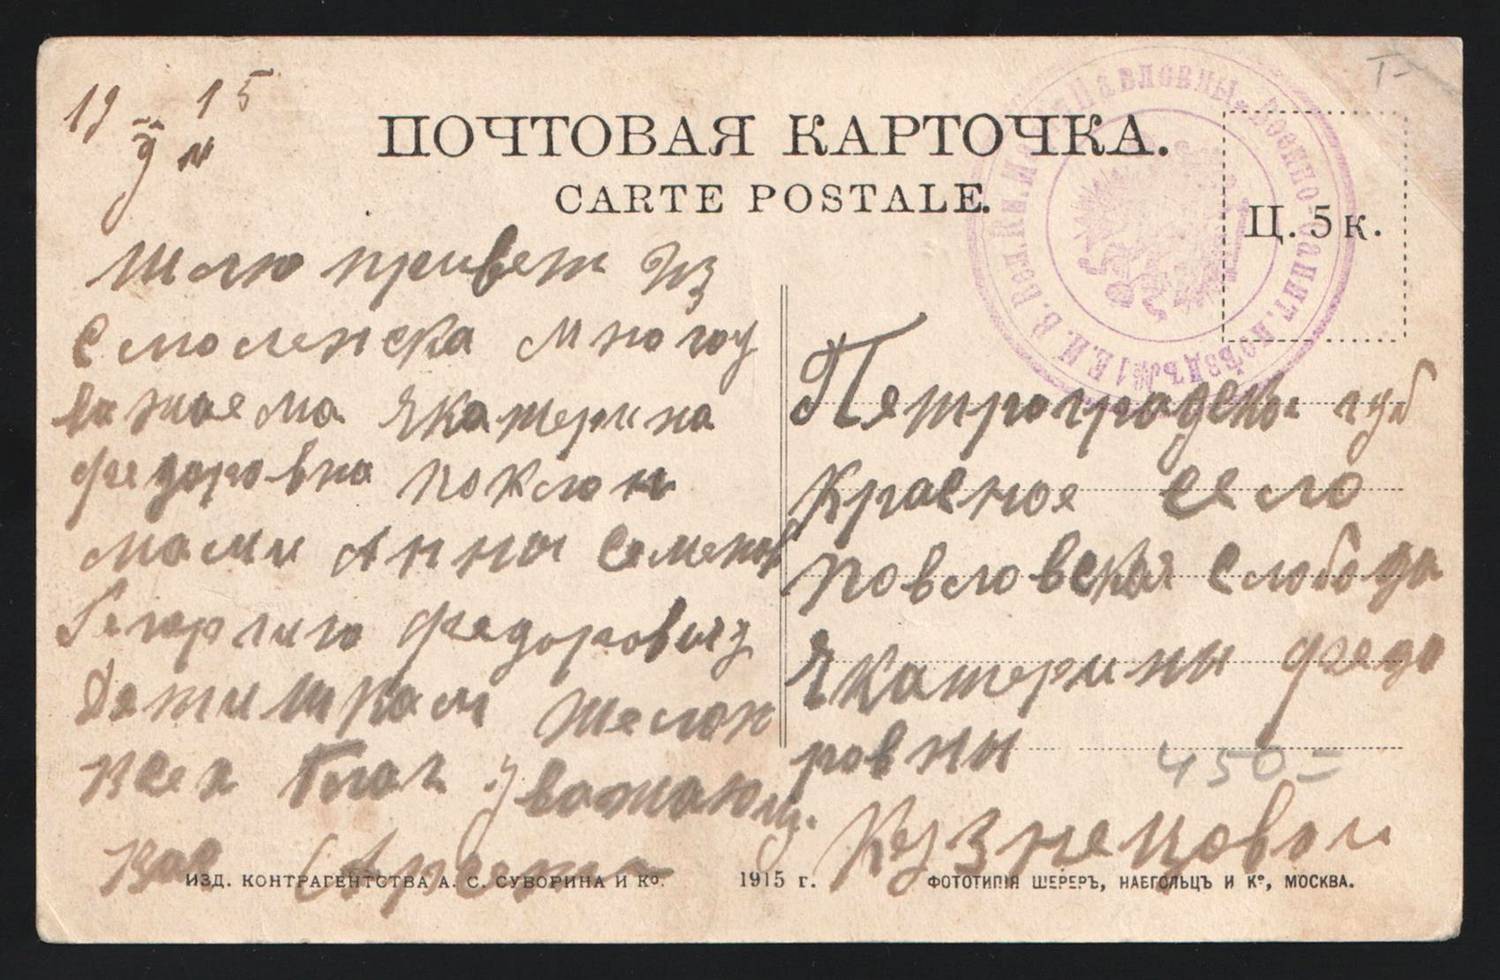 19 15
9
ПОЧТОВАЯ КАРТОЧКА.
CARTE POSTALE.
Ц. 5 к.
Е. И. В. Вел. Кн. Маріи Павловны. Военно-санит. поѣздъ № 1
Шлю привет Из
Смоленска много у
важаема Якатерина
федоровна поклон
мами Анны Семенов
Георгию федоровичу
Детишкам желою
всех благ Уважающ.
вас
Петроградскы губ
красное село
повловская слобода
Якатерины федо
ровны
450=
Кузнецовой
ИЗД. КОНТРАГЕНТСТВА А. С. СУВОРИНА И Ко.
1915 г.
ФОТОТИПІЯ ШЕРЕРЪ, НАБГОЛЬЦЪ И Ко, МОСКВА.